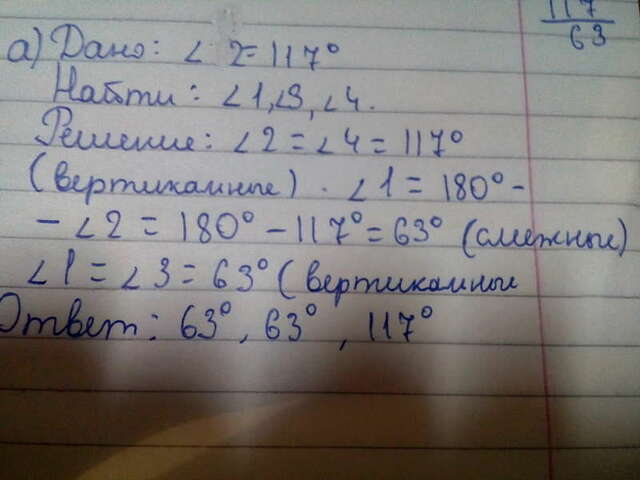 117
63
а) Дано: ∠2=117°
Найти: ∠1,∠3,∠4.
Решение: ∠2=∠4=117°
(вертикальные). ∠1=180°-
-∠2=180°-117°=63° (смежные)
∠1=∠3=63° (вертикальные
Ответ: 63°, 63°, 117°